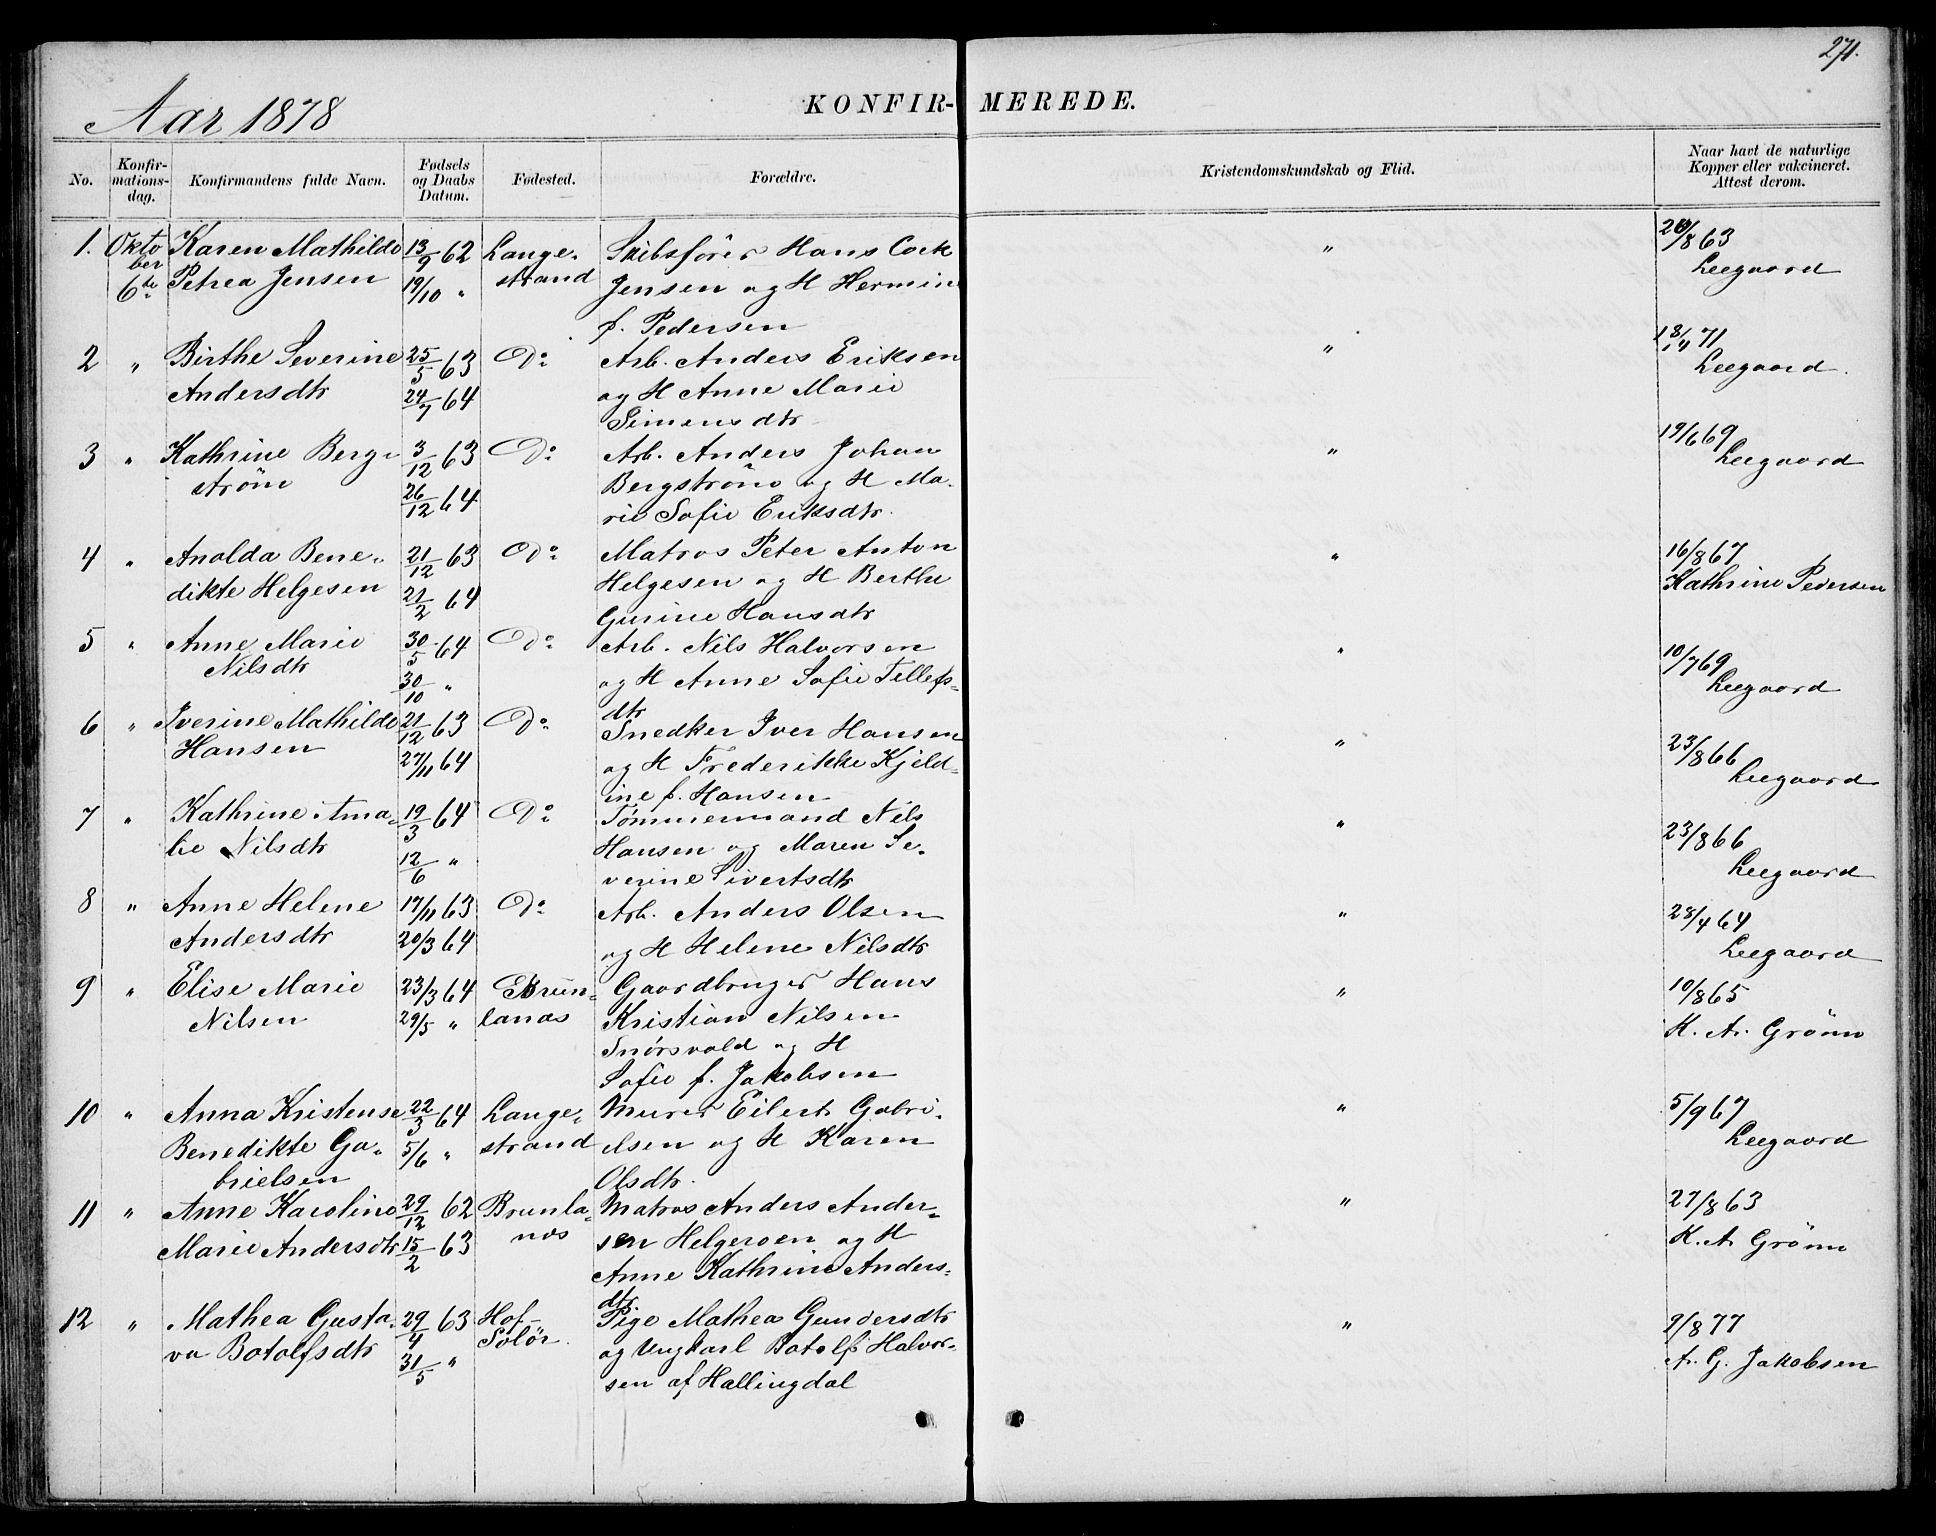 271.
Aar 1878
KONFIR- MEREDE.
No. Konfir-mations-dag. Konfirmandens fulde Navn. Fødsels og Daabs Datum. Fødested. Forældre. Kristendomskundskab og Flid. Naar havt de naturlige Kopper eller vakcineret. Attest derom.
1. Okto Karen Mathilde 13/9 62 Lange- Skibsfører Hans Cock " 26/8 63
ber 6te Petrea Jensen 19/10 " strand Jensen og H Hermine Leegaard
f. Pedersen
2 " Birthe Severine 25/5 63 Do Arb. Anders Eriksen " 18/11 71
Andersdtr 24/7 64 og H Anne Marie Leegaard.
Simensdtr
3 " Kathrine Berg- 3/12 63 Do Arb. Anders Johan " 19/6 69
strøm 26/12 64 Bergstrøm og H Ma- Leegaard
rie Sofie Eriksdtr.
4 " Anolda Bene- 21/12 63 Do Matros Peter Anton " 16/8 67
dikte Helgesen 21/2 64 Helgesen og H Berthe Kathrine Pedersen
Gurine Hansdtr
5 " Anne Marie 30/5 64 Do Arb. Nils Halvorsen " 10/7 69
Nilsdtr 30/10 " og H Anne Sofie Tellefs- Leegaard
dtr
6 " Iverine Mathilde 21/12 63 Do Snedker Iver Hansen " 23/8 66
Hansen 27/11 64 og H Frederikke Kjeld- Leegaard
ine f. Hansen
7 " Kathrine Ama- 19/3 64 Do Tømmermand Nils " 23/8 66
lie Nilsdtr 12/6 " Hansen og Maren Se- Leegaard
verine Sivertsdtr
8 " Anne Helene 17/11 63 Do Arb. Anders Olsen " 28/4 64
Andersdtr 20/3 64 og H Helene Nilsdtr Leegaard
9 " Elise Marie 23/3 64 Brun- Gaardbruger Hans " 10/8 65
Nilsen 29/5 " lanæs Kristian Nilsen K. A. Grønn
Snørsvald og H
Sofie f. Jakobsen
10 " Anna Kristense 22/3 64 Lange- Murer Eilert Gabri- " 5/9 67
Benedikte Ga- 5/6 " strand elsen og H Karen Leegaard
brielsen Olsdtr.
11 " Anne Karoline 29/12 62 Brunla- Matros Anders Ander- " 27/8 63
Marie Andersdtr 15/2 63 næs sen Helgeroen og H K. A. Grønn
Anne Kathrine Anders-
dtr
12 " Mathea Gusta- 29/4 63 Hof- Pige Mathea Gundersdtr " 9/8 77
va Botolfsdtr 31/5 " Solør. og Ungkarl Botolf Halvor- A. G. Jakobsen
sen af Hallingdal